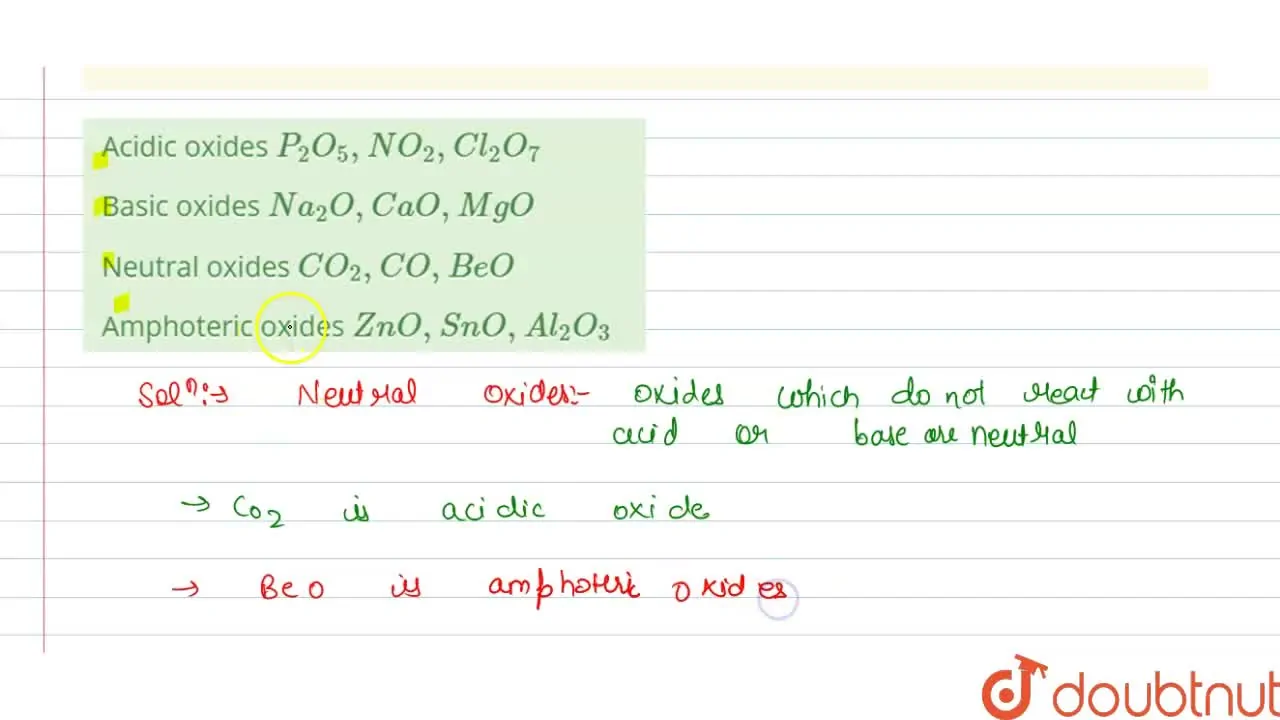 Acidic oxides P₂O₅, NO₂, Cl₂O₇
Basic oxides Na₂O, CaO, MgO
Neutral oxides CO₂, CO, BeO
Amphoteric oxides ZnO, SnO, Al₂O₃
Solⁿ:→ Neutral oxides:- oxides which do not react with
acid or base are neutral
→ CO₂ is acidic oxide
→ BeO is amphoteric oxides
doubtnut